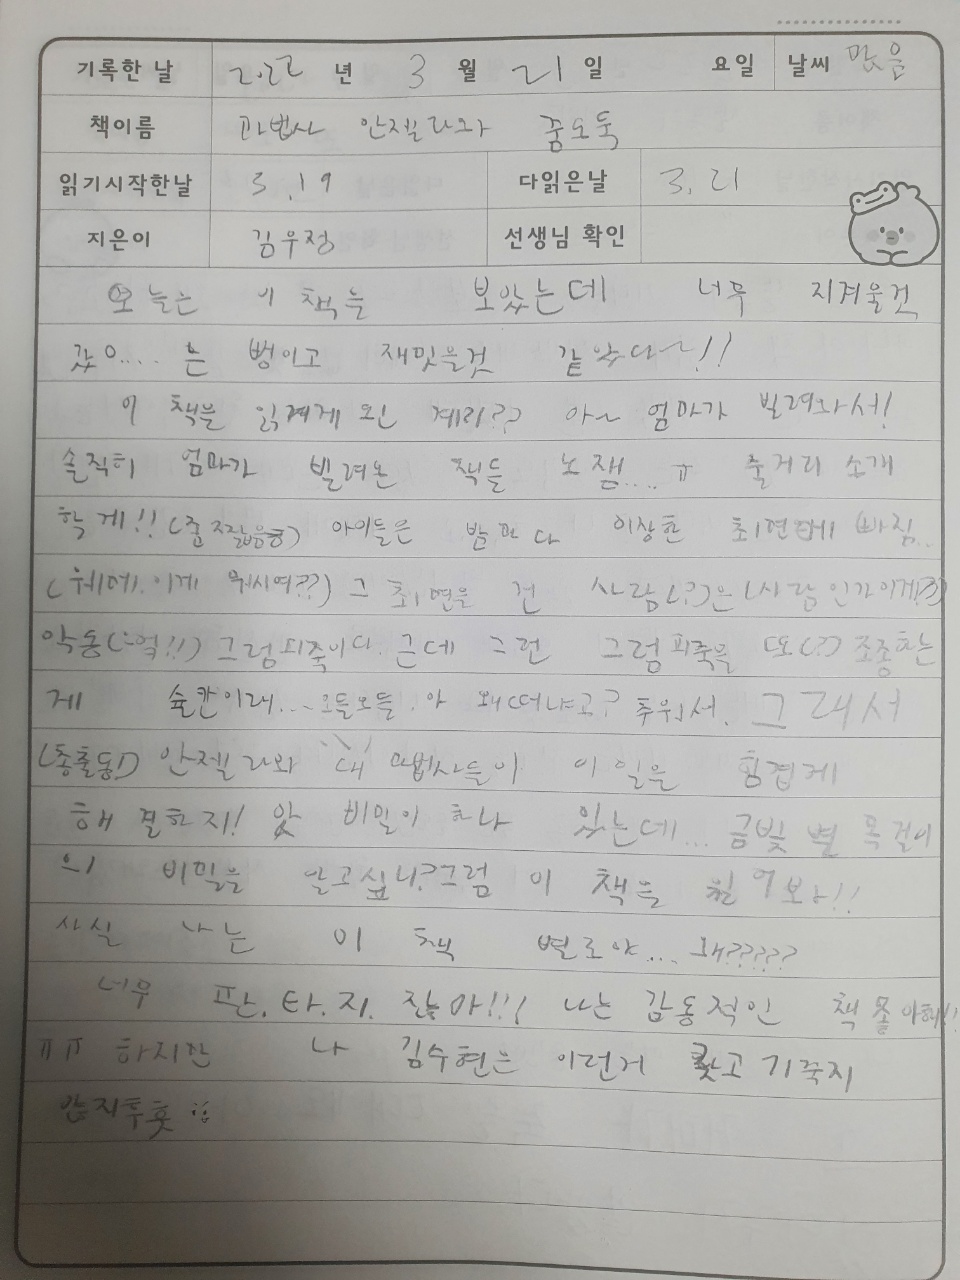 기록한 날 2022 년 3 월 21 일 요일 날씨 맑음
책이름 마법사 안젤라와 꿈도둑
읽기시작한날 3.19 다읽은날 3.21
지은이 김우정 선생님 확인
오늘은 이 책을 보았는데 너무 지겨울것
같으.... 는 뻥이고 재밌을것 같았다~!!
이 책을 읽게된 계기?? 아~ 엄마가 빌려와서!
솔직히 엄마가 빌려온 책들 노잼.... ㅠ 줄거리 소개
할게!! 아이들은 밤마다 이상한 최면에 빠짐...
(웨메.이게 뭐시여??) 그 최면을 건 사람(?)은 (사람인가이게??)
악동(-억!!) 그럼피죽이다. 근데 그런 그럼피죽을 또(?) 조종하는
게 슐칸이래... 오들오들. 아 왜떠냐고? 추워서. 그래서
(총출동!) 안젤라와 대 마법사들이 이 일을 힘겹게
해결하지! 앗 비밀이 하나 있는데... 금빛 별 목걸이
의 비밀을 알고싶니?그럼 이 책을 읽어보아!!
사실 나는 이 책 별로야.... 왜?????
너무 판.타.지. 잖아!!! 나는 감동적인 책 좋아해!!
ㅠㅠ 하지만 나 김수현은 이런거 갖고 기죽지
않지후훗